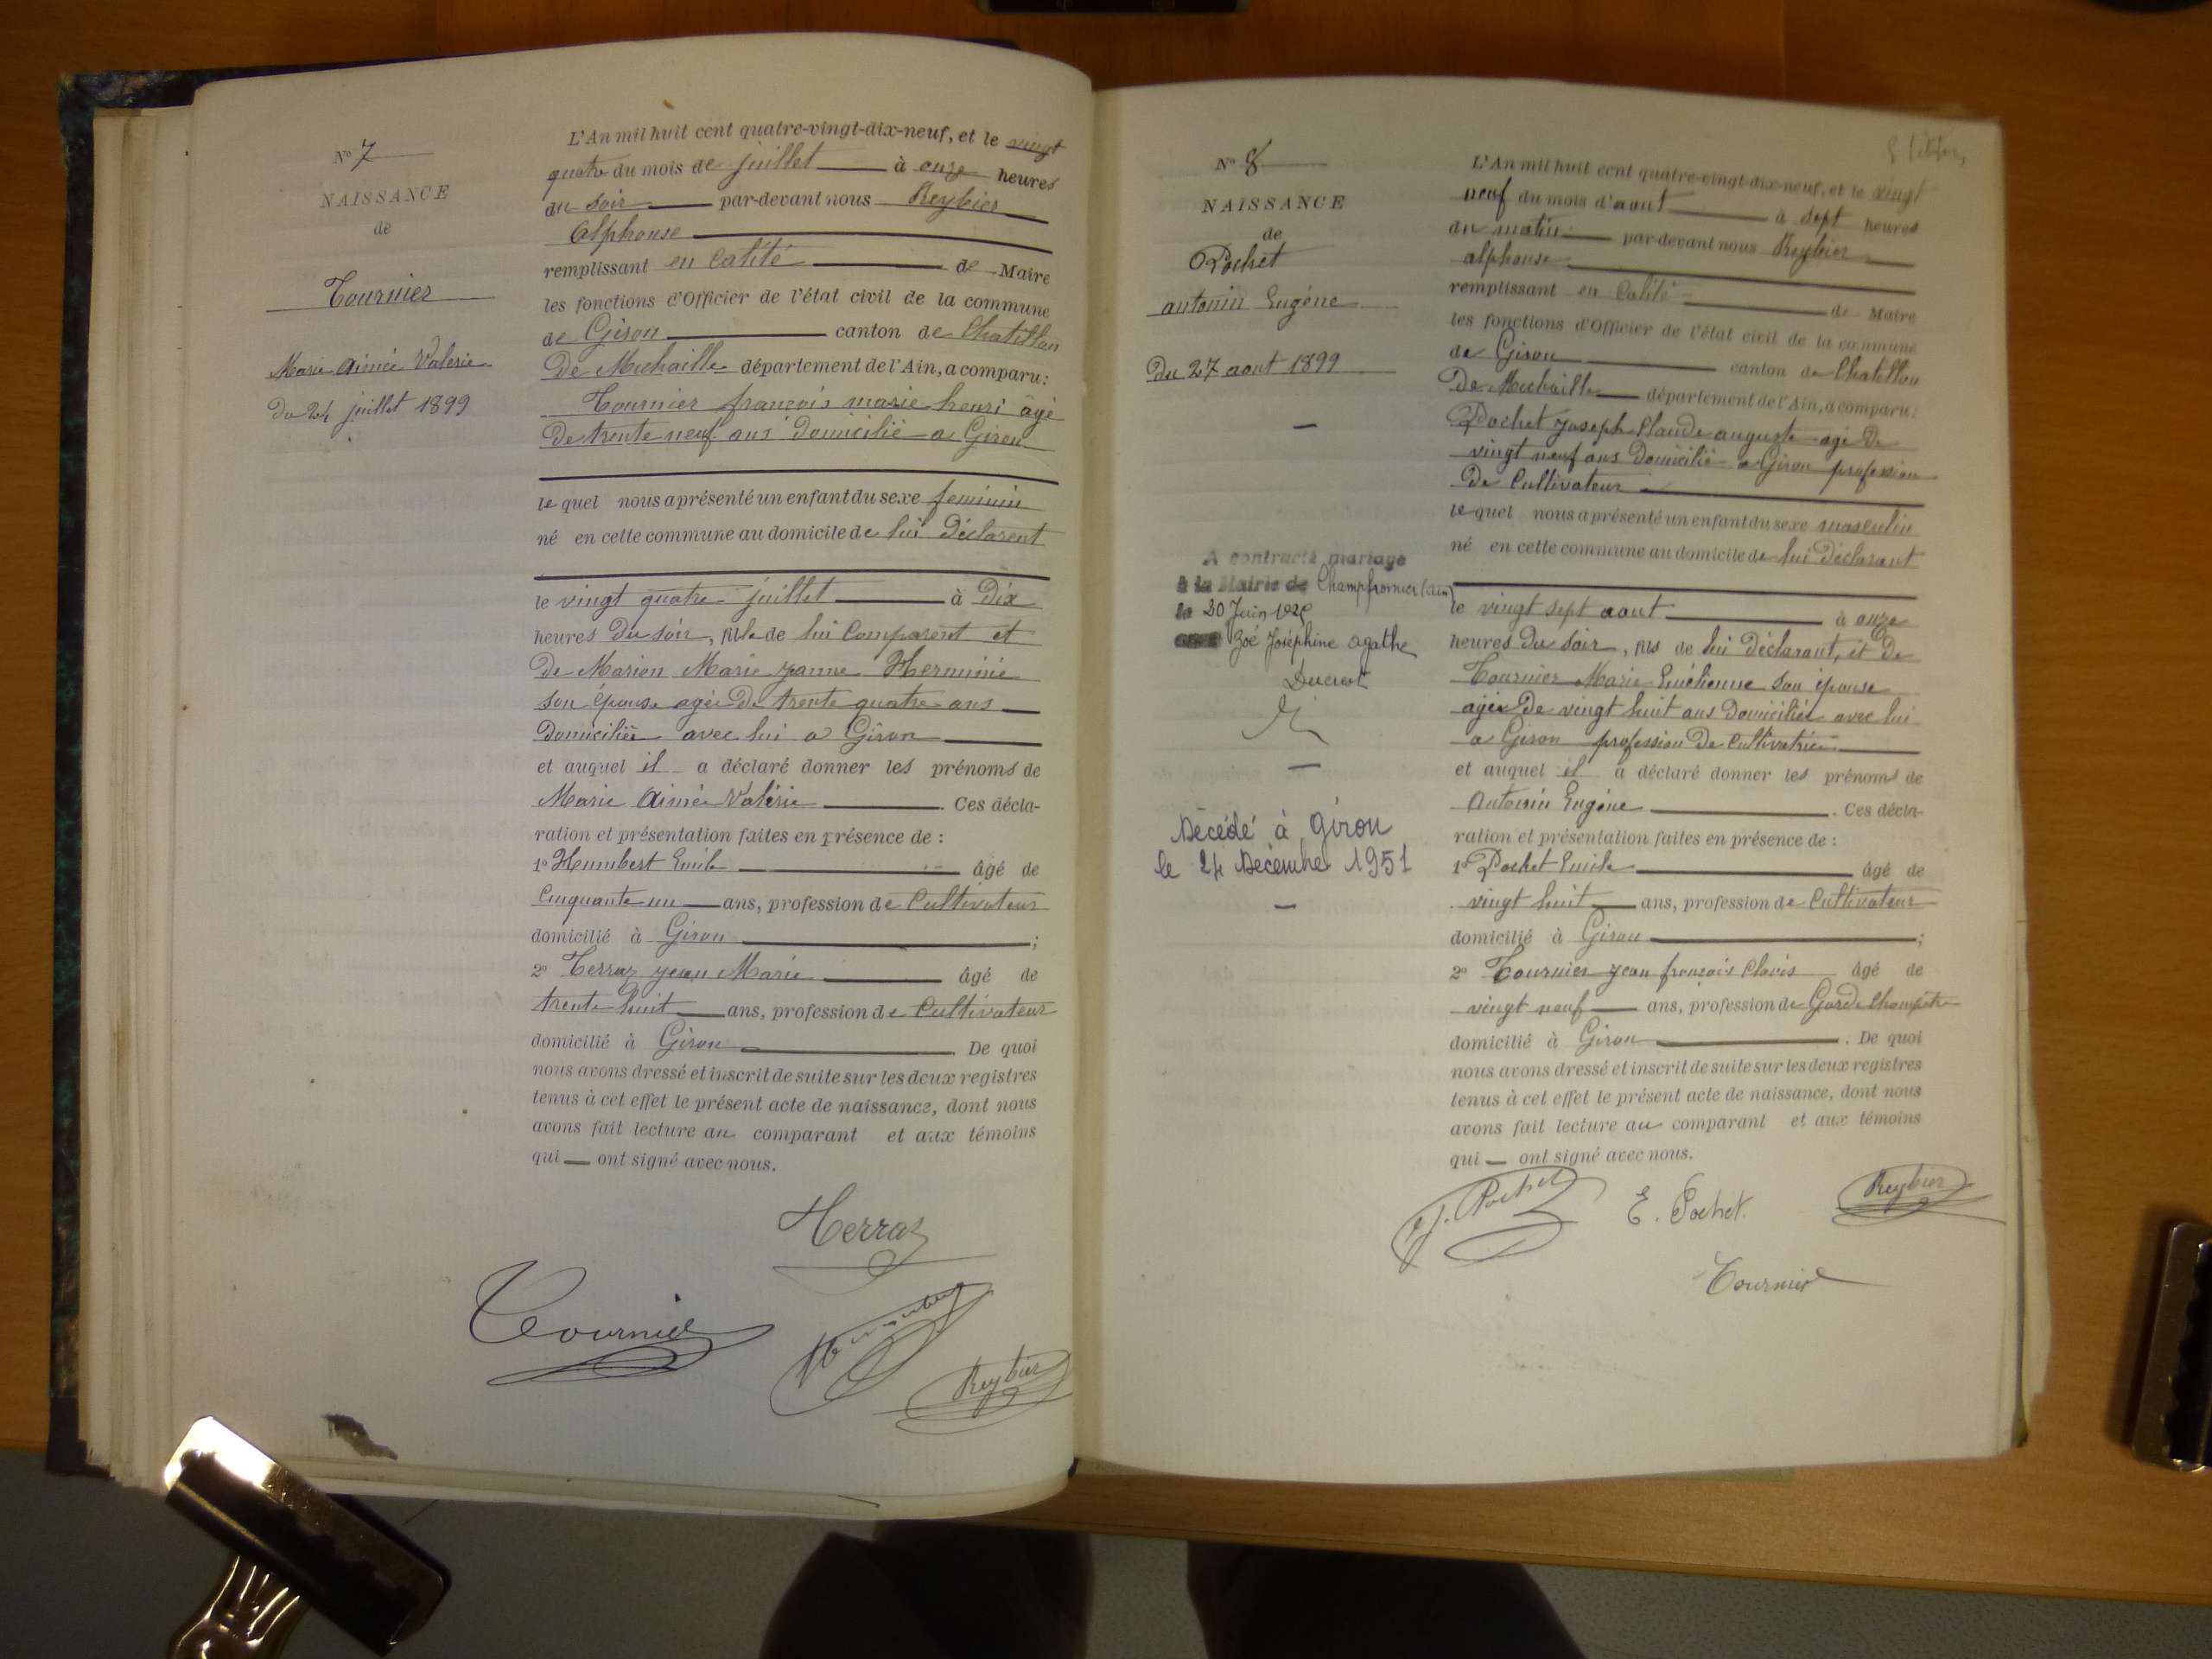 N° 7
NAISSANCE
de
Tournier
Marie Aimée Valérie
Du 24 juillet 1899
L'An mil huit cent quatre-vingt-dix-neuf, et le vingt
quatre du mois de juillet à onze heures
du soir par-devant nous Reybier
Alphonse
remplissant en calité de Maire
les fonctions d'Officier de l'état civil de la commune
de Giron canton de Chatillon
De Michaille département de l'Ain, a comparu:
Tournier françois marie henri âgé
De trente neuf ans Domicilié a Giron
le quel nous a présenté un enfant du sexe feminin
né en cette commune au domicile de lui Déclarent
le vingt quatre juillet à Dix
heures Du soir, fille de lui Comparent et
De Marion Marie Janne Herminie
son épouse agée De trente quatre ans
Domiciliée avec lui a Giron
et auquel il a déclaré donner les prénoms de
Marie Aimée Valérie. Ces décla-
ration et présentation faites en présence de :
1° Humbert Emile âgé de
Cinquante un ans, profession de Cultivateur
domicilié à Giron ;
2° Terraz Jean Marie âgé de
trente huit ans, profession de Cultivateur
domicilié à Giron De quoi
nous avons dressé et inscrit de suite sur les deux registres
tenus à cet effet le présent acte de naissance, dont nous
avons fait lecture au comparant et aux témoins
qui ont signé avec nous.
Terraz
Tournier
Humbert
Reybier
N° 8
NAISSANCE
de
Pochet
antonin Eugène
Du 27 aout 1899
A contracté mariage
à la Mairie de Champfromier (Ain)
le 30 Juin
Zoé Joséphine Agathe
Ducret
Décédé à Giron
le 24 Décembre 1951
L'An mil huit cent quatre-vingt-dix-neuf, et le vingt
neuf du mois d'aout à sept heures
du matin par-devant nous Reybier
alphonse
remplissant en Calité de Maire
les fonctions d'Officier de l'état civil de la commune
de Giron canton de Chatillon
De Michaille département de l'Ain, a comparu:
Pochet Joseph Claude auguste agé De
vingt neuf ans Domicilié a Giron profession
De Cultivateur
le quel nous a présenté un enfant du sexe masculin
né en cette commune au domicile de lui Déclarant
le vingt sept aout à onze
heures Du soir, fils de lui Déclarant, et De
Tournier Marie son épouse
agée De vingt huit ans Domiciliée avec lui
a Giron profession De Cultivatrice
et auquel il a déclaré donner les prénoms de
Antonin Eugène. Ces décla-
ration et présentation faites en présence de :
1° Pochet Emile âgé de
vingt huit ans, profession de Cultivateur
domicilié à Giron ;
2° Tournier Jean françois Clovis âgé de
vingt neuf ans, profession de Garde Champêtre
domicilié à Giron. De quoi
nous avons dressé et inscrit de suite sur les deux registres
tenus à cet effet le présent acte de naissance, dont nous
avons fait lecture au comparant et aux témoins
qui ont signé avec nous.
J. Pochet
E. Pochet.
Reybier
Tournier